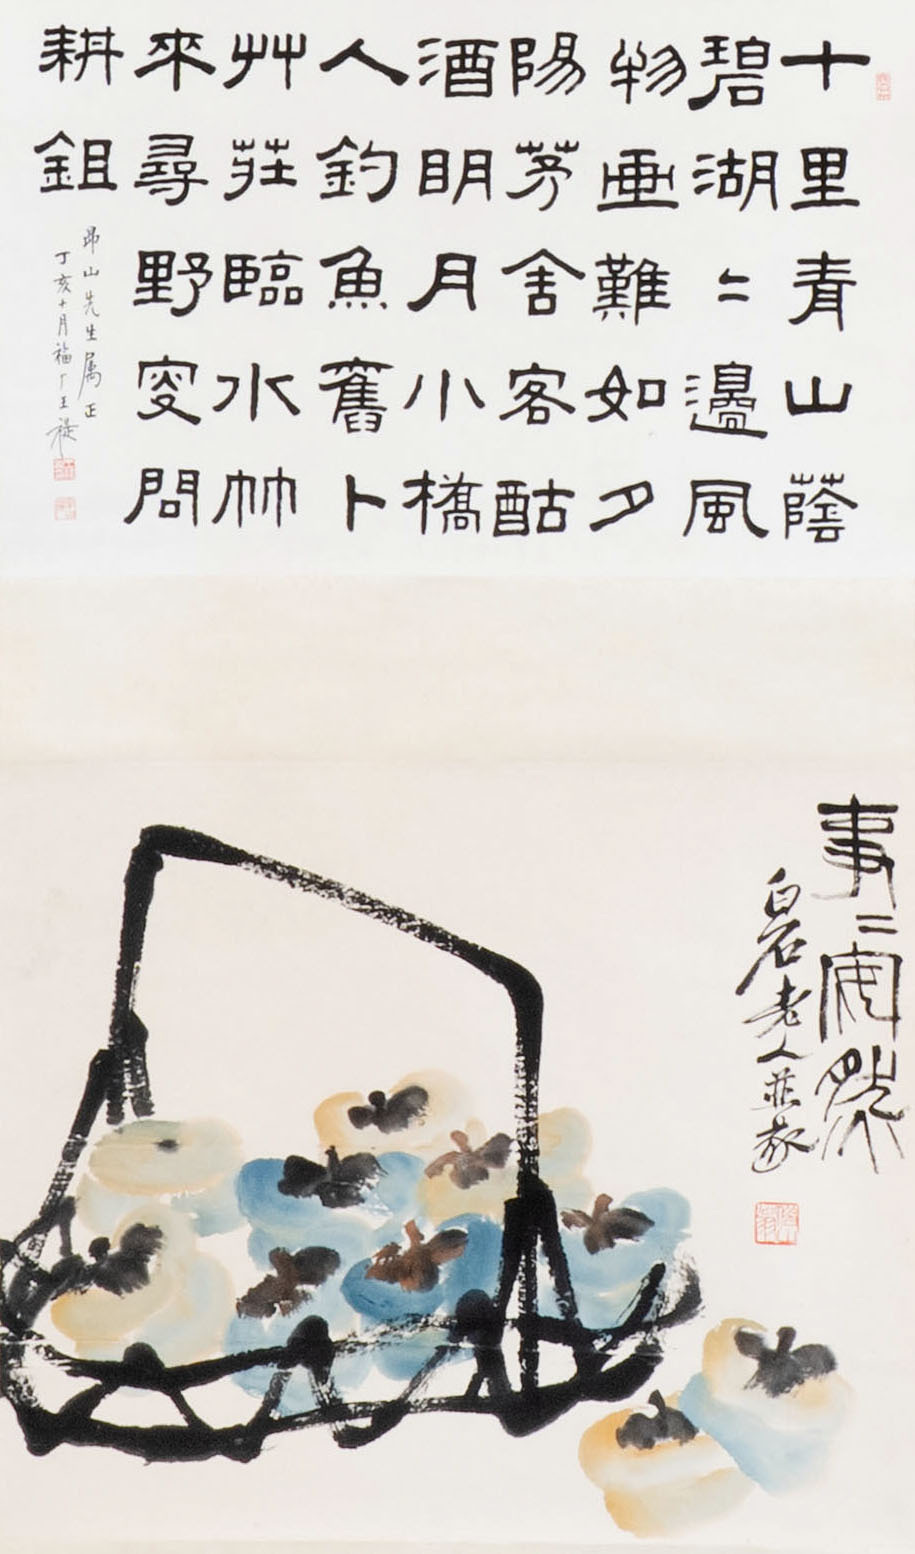 十里青山蔭
碧湖二邊風
物画難如夕
陽茅舍客酤
酒明月小橋
人釣魚舊卜
艸莊臨水竹
來尋野叟問
耕鉏
昂山先生属正
丁亥十月福厂王禔
事二安然
白石老人並篆